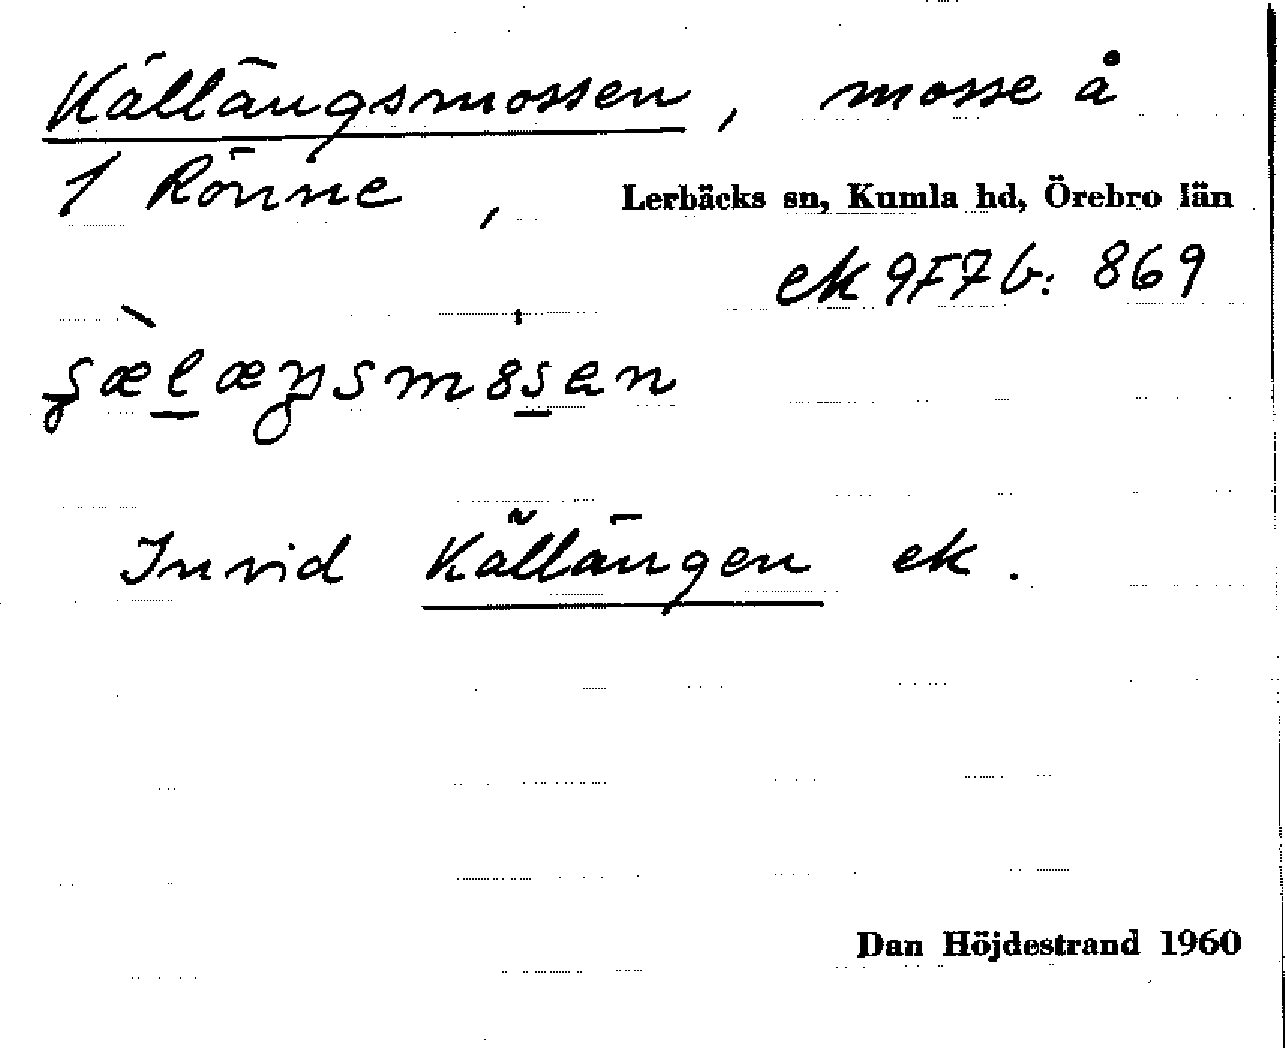 Källängsmossen, mosse å
1 Rönne, Lerbäcks sn, Kumla hd, Örebro län
ek 9F7b: 869
Invid Källängen ek.
Dan Höjdestrand 1960